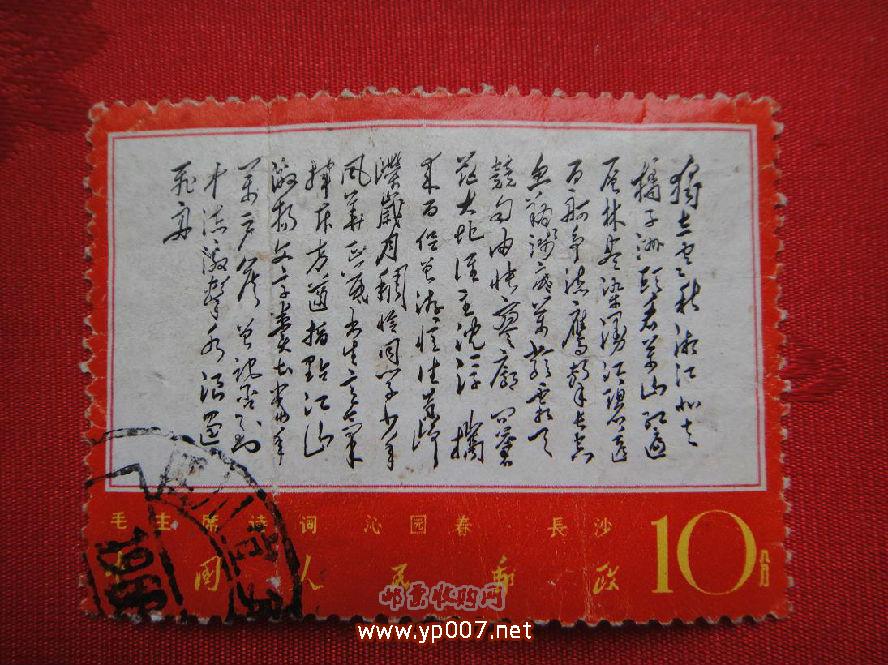 獨立寒秋湘江北去
橘子洲頭看萬山红遍
层林尽染漫江碧透
百舸争流鹰击长空
鱼翔浅底萬類霜天
竞自由怅寥廓问苍
茫大地谁主沉浮 携
来百侣曾游忆往昔峥
嵘歲月稠恰同学少年
风華正茂书生意气
挥斥方遒指點江山
激扬文字粪土当年
萬户侯曾记否到
中流击水浪遏
飞舟
毛主席诗词 沁园春 長沙
中国人民郵政 10分
邮票收购网
www.yp007.net